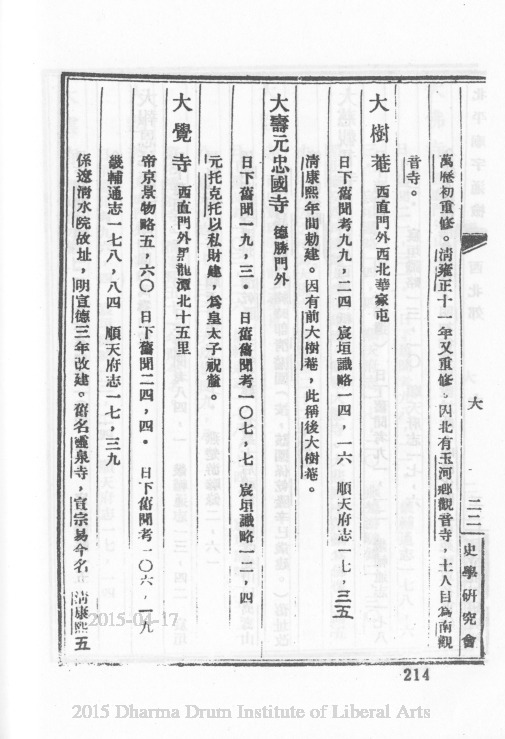 大
二二
史學研究會
萬歷初重修。清雍正十一年又重修。因北有玉河鄉觀音寺，土人目為南觀
音寺。
大樹菴 西直門外西北華家屯
日下舊聞考九九，二四 宸垣識略一四，一六 順天府志一七，三五
清康熙年間勅建。因有前大樹菴，此稱後大樹菴。
大壽元忠國寺 德勝門外
日下舊聞一九，三。 日舊舊聞考一〇七，七 宸垣識略一二，四
元托克托以私財建，為皇太子祝釐。
大覺寺 西直門外黑龍潭北十五里
帝京景物略五，六〇 日下舊聞二四，四。 日下舊聞考一〇六，一九
畿輔通志一七八，八四 順天府志一七，三九
係遼清水院故址，明宣德三年改建。舊名靈泉寺，宣宗易今名 清康熙五
214
2015-04-17
2015 Dharma Drum Institute of Liberal Arts